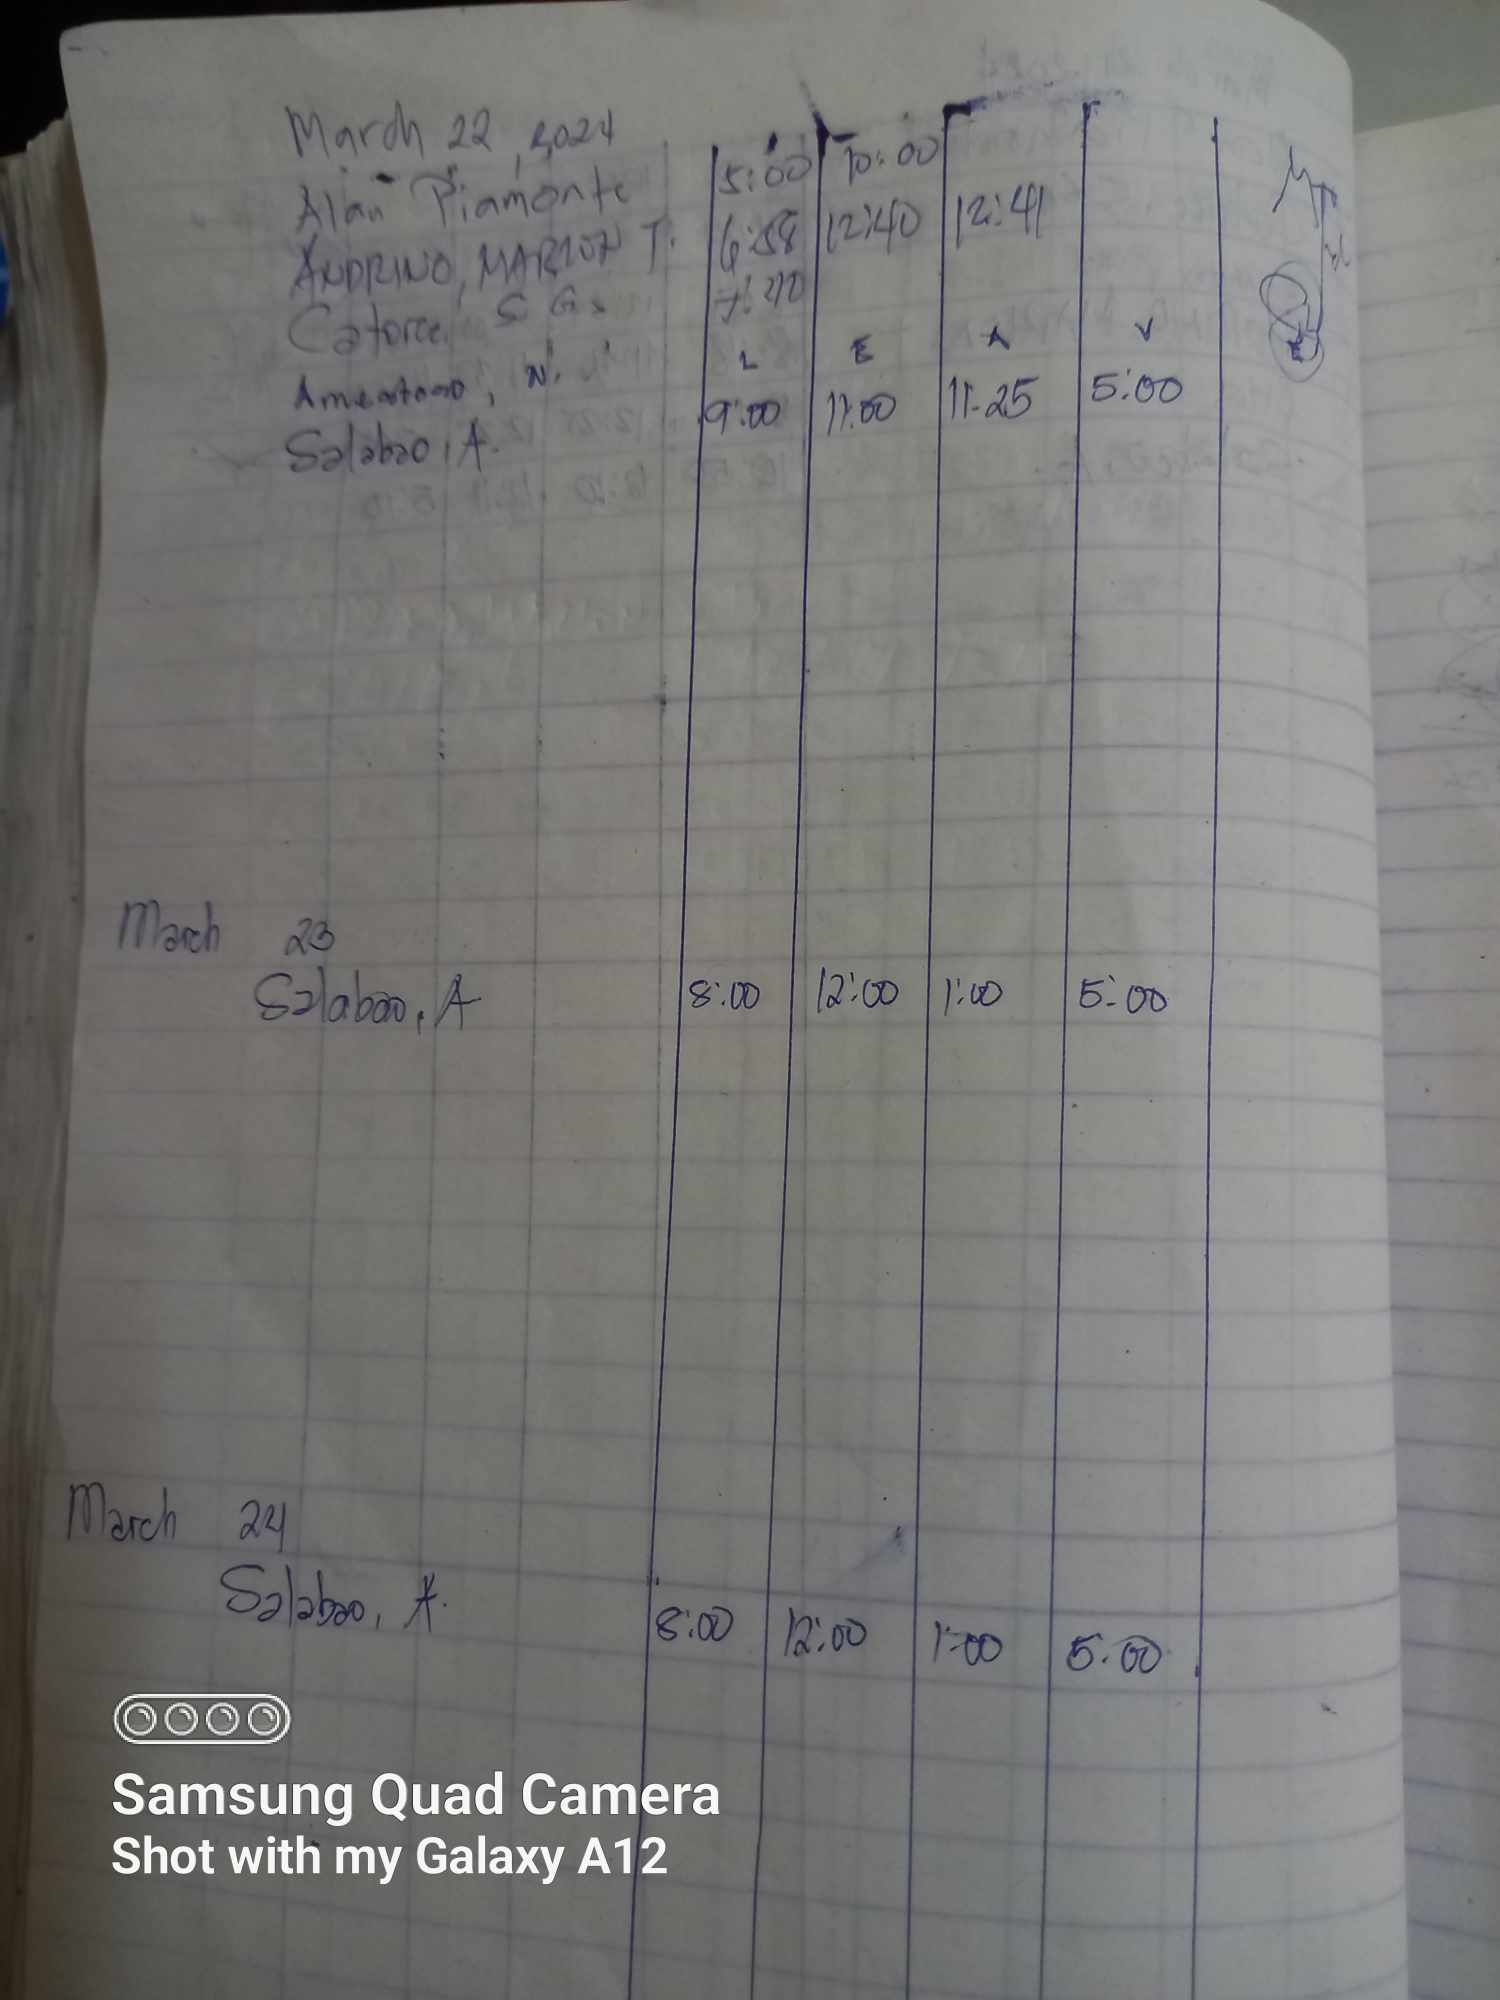 March 22, 2024
Alan Piamonte 5:00 10:00
ANDRINO, MARION T. 6:58 12:40 12:41
Catorce, S G. 7:40
N. L E A V
Salabao, A. 9:00 11:00 11-25 5:00
March 23
Salabao, A 8:00 12:00 1:00 5:00
March 24
Salabao, A. 8:00 12:00 1:00 5:00
Samsung Quad Camera
Shot with my Galaxy A12